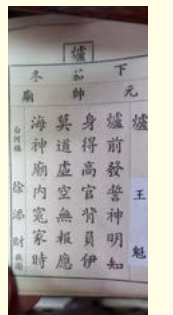 爐
下茄冬
元帥廟
爐 王魁
爐前發誓神明知
身得高官背員伊
莫道虛空無報應
海神廟內冤家時
白河鎮 徐添財